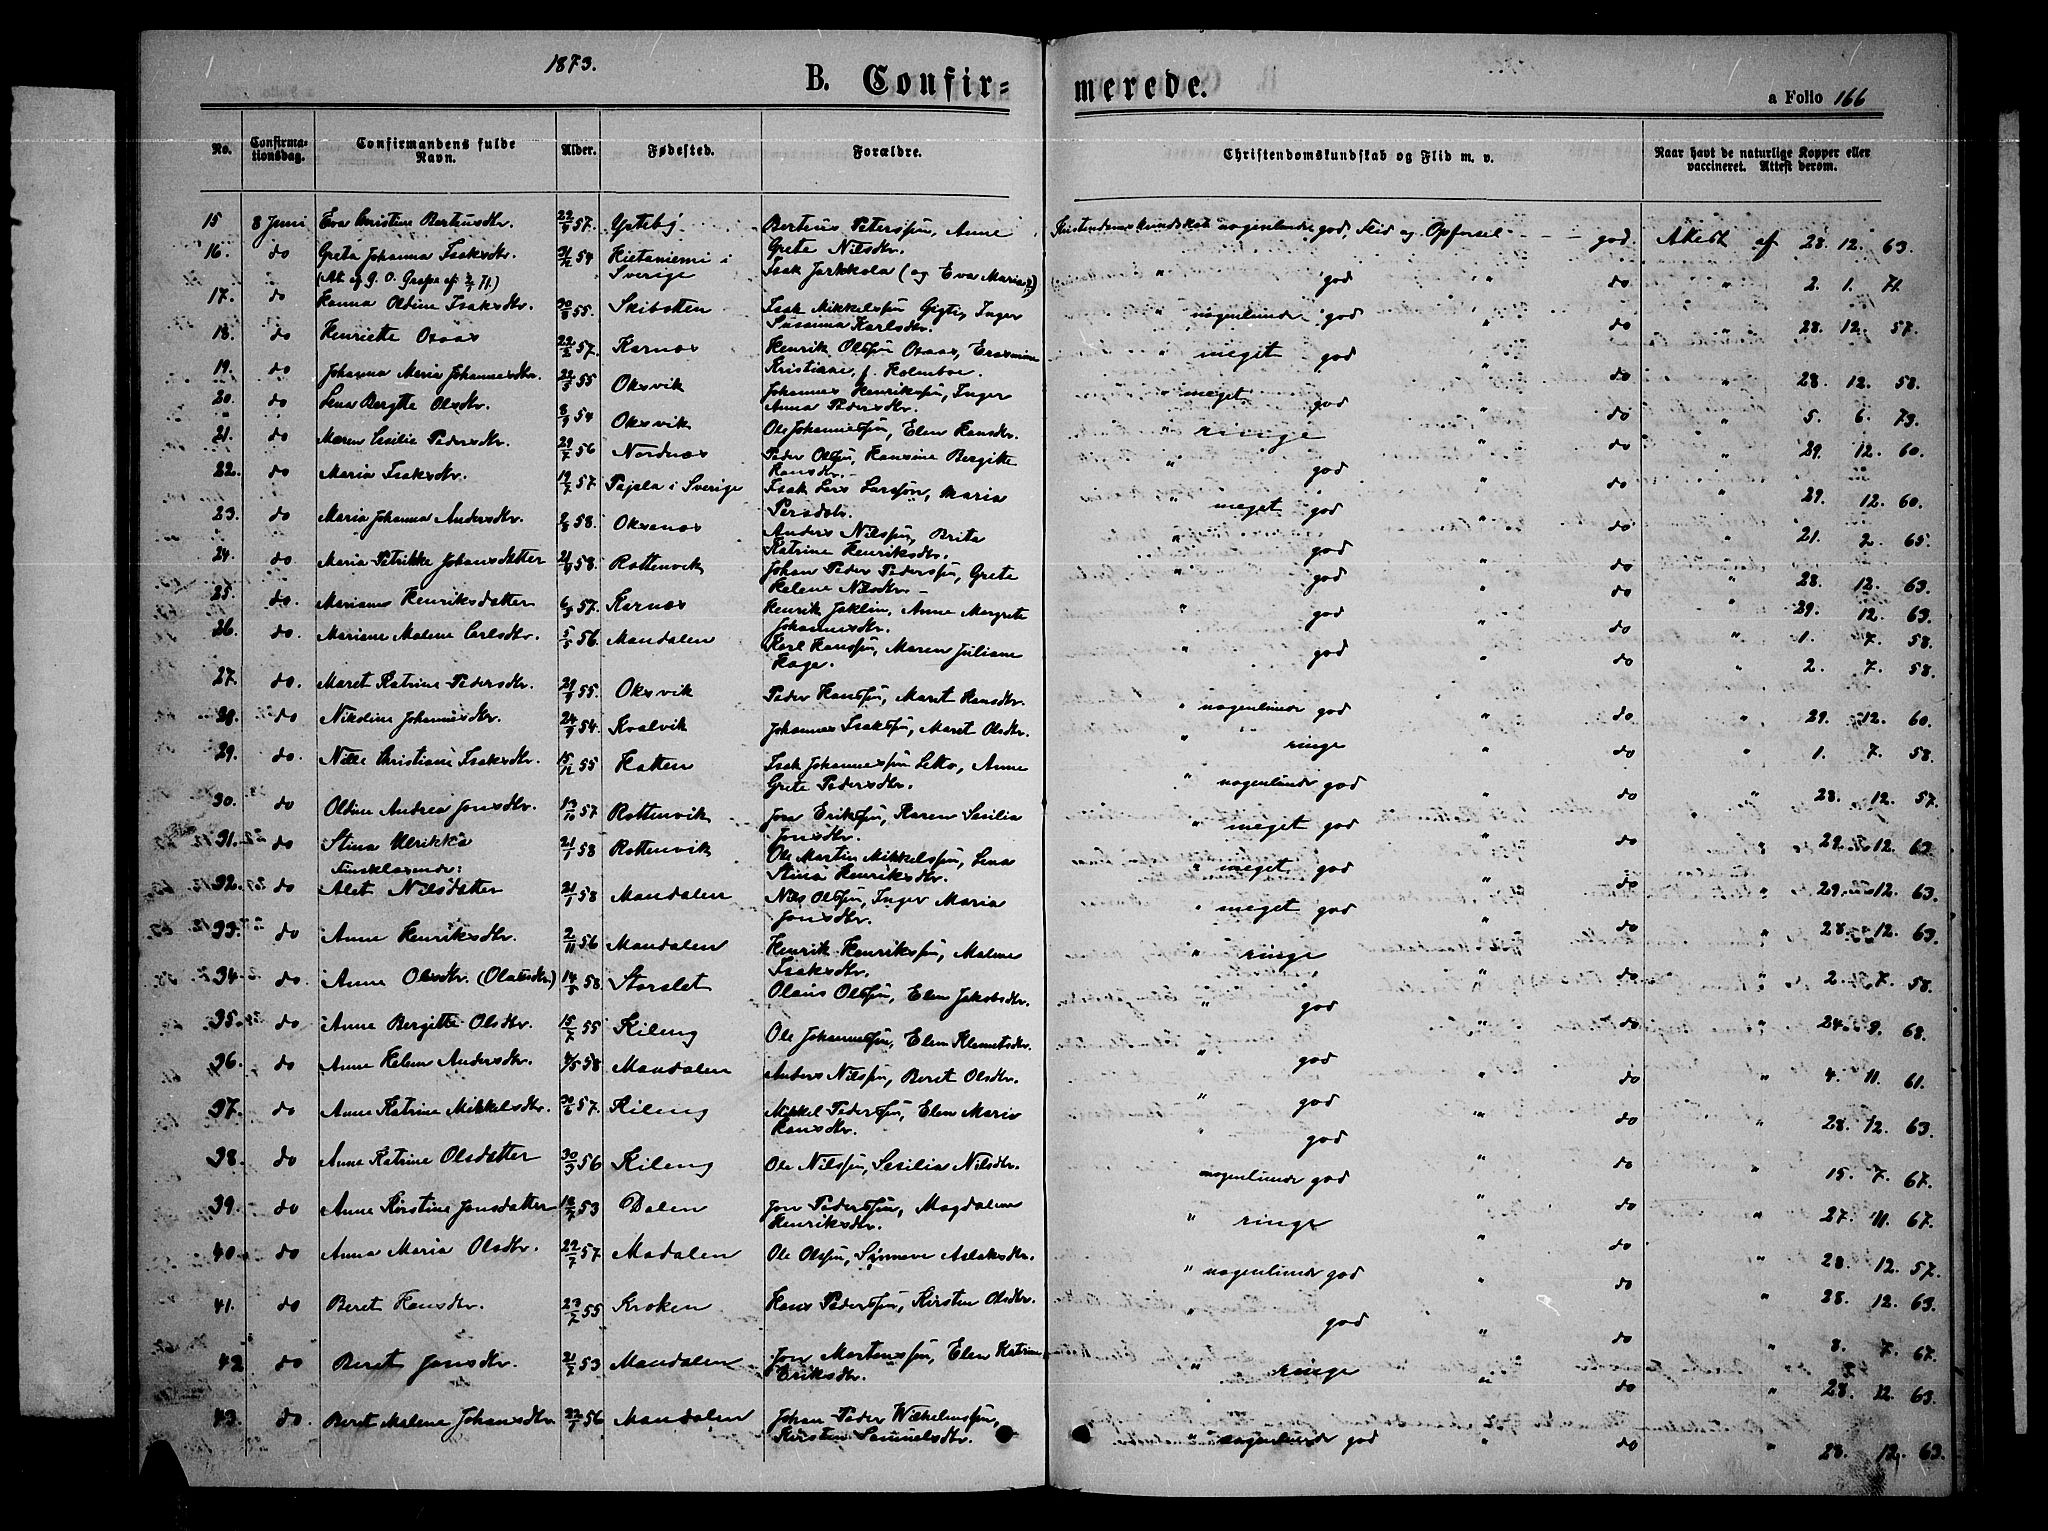 1873.
B. Confirmerede.
a Folio 166
No. Confirmationsdag. Confirmandens fulde Navn. Alder. Fødested. Forældre. Christendomskundskab og Flid m. v. Naar havt de naturlige Kopper eller vaccineret. Attest derom.
15 8 Juni Eva Christine Bertusdtr. 57. Ystebø Bertius Peterssøn, Anne Grete Nilsdtr. Kristendomskundskab nogenlunde god, Flid og Opførsel god Attest af 28. 12. 63.
16. do Greta Johanna Isaksdtr. 54 Hietaniemi i Sverige Isak Jarkkola (og Eva Maria?) " god " do " 2. 1. 71.
(At. af G. O. Grape af 2/1 71.)
17. do Hanna Oldine Isaksdtr. 30/8 55. Skibotten Isak Mikkelssøn Gigti, Inger Susanna Karlsdtr. " nogenlunde god " do " 28. 12. 57.
18. do Henriette Oxaas 22/2 57. Karnæs Henrik Olssøn Oxaas, Erasmine Kristiane, f. Holmboe. " meget god " do " 28. 12. 58.
19. do Johanna Maria Johannesdtr. 55 Oksvik Johannes Henrikssøn, Inger Anna Pedersdtr. " meget god " do " 5. 6. 73.
20. do Lena Bergitte Olsdtr. 54 Oksvik Ole Johannessøn, Elen Hansdtr. " ringe " do " 29. 12. 60.
21. do Maren Cecilie Pedersdtr. 29/7 56 Nordnæs Peder Olssøn, Hansine Bergitte Hansdtr. " god " do " 29. 12. 60.
22. do Maria Isaksdtr. 19/7 57. Pajala i Sverige Isak Lars Larssøn, Maria Persdotr. " meget god " do " 21. 2. 65.
23. do Maria Johanna Andersdtr. 58. Oksenæs Anders Nilssøn, Brita Katrine Henriksdtr. " god " do " 28. 12. 63.
24. do Maria Petrikke Johansdatter 58. Rottenvik Johan Peder Pederssøn, Grete Helene Nilsdtr. " god " do " 29. 12. 63.
25. do. Mariane Henriksdatter 57. Karnæs Henrik Jaklin, Anne Margrete Johannesdtr. " god " do " 1. 7. 58.
26. do. Mariane Malene Carlsdtr. 5/5 56. Mandalen Karl Hanssøn, Maren Juliane Hage. " god " do " 2. 7. 58.
27. do. Maret Katrine Pedersdtr. 55. Oksvik Peder Hanssøn, Maret Hansdtr. " nogenlunde god " do " 29. 12. 60.
28. do Nikoline Johannesdtr. 54. Kvalvik Johannes Isakssøn, Maret Olsdtr. " ringe " do " 1. 7. 58.
29. do. Nille Christiane Isaksdtr. 15/12 55 Hatten Isak Johannessøn Letto, Anne Grete Pedersdtr. " nogenlunde god " do " 28. 12. 57.
30. do Oldine Andrea Jonsdtr. 13/10 57 Rottenvik Jon Erikssøn, Karen Sesilia Jonsdtr. " meget god " do " 29. 12. 63
31. do Stina Ulrikka 21/1 58 Rottenvik Ole Martin Mikkelssøn, Lena Stina Henriksdtr. " meget god " do " 29. 12. 63.
Finsklæsende:
32. do Alet Nilsdatter 21/1 58 Mandalen Nils Olssøn, Inger Maria Jonsdtr. " meget god " do " 28. 12. 63.
33. do Anne Henriksdtr. 2/11 56 Mandalen Henrik Henrikssøn, Malene Isaksdtr. " ringe " do " 2. 7. 58.
34 do. Anne Olsdtr. (Olausdtr) 58 Storslet Olaus Olssøn, Elen Jakobsdtr. " god " do " 24. 9. 68.
35. do Anne Bergitte Olsdtr. 15/7 55 Kileng Ole Johannessøn, Elen Klemetsdtr. " god " do " 4. 11. 61.
36. do Anne Helene Andersdtr. 4/5 58 Mandalen Anders Nilssøn, Beret Olsdtr. " god " do " 28. 12. 63.
37. do Anne Katrine Mikkelsdtr. 30/6 57. Kileng Mikkel Pederssøn, Elen Maria Hansdtr. " god " do " 15. 7. 67.
38. do Anne Katrine Olsdatter 56 Kileng Ole Nilssøn, Sesilia Nilsdtr. nogenlunde god " do " 27. 11. 67.
39. do Anne Kirstine Jonsdatter 18/7 53 Dalen Jon Pederssøn, Magdalene Henriksdtr. " ringe " do " 28. 12. 57.
40. do Anna Maria Olsdtr. 22/7 57. Madalen Ole Olssøn, Synneve Aslaksdtr. " nogenlunde god " do " 28. 12. 63.
41. do Beret Hansdtr. 55 Kroken Hans Pederssøn, Kirsten Olsdtr. " god " do " 8. 7. 67.
42 do Beret Jonsdtr. 53 Mandalen Jon Mortenssøn, Elen Katrine Eriksdtr. " ringe " do " 28. 12. 63.
43. do. Beret Malene Johansdtr. 22/7 56 Mandalen Johan Peder Wilhelmssøn, Kirsten Samuelsdtr. " nogenlunde god " do " 28. 12. 63.